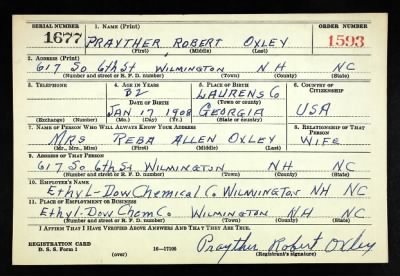 SERIAL NUMBER 1. NAME (Print) ORDER NUMBER
1677 PRAYTHER ROBERT OXLEY 1593
(First) (Middle) (Last)
2. ADDRESS (Print)
617 SO 6th St WILMINGTON NH NC
(Number and street or R. F. D. number) (Town) (County) (State)
3. TELEPHONE 4. AGE IN YEARS 5. PLACE OF BIRTH 6. COUNTRY OF CITIZENSHIP
32 LAURENS Co
DATE OF BIRTH (Town or county)
JAN 17 1908 GEORGIA USA
(Exchange) (Number) (Mo.) (Day) (Yr.) (State or country)
7. NAME OF PERSON WHO WILL ALWAYS KNOW YOUR ADDRESS 8. RELATIONSHIP OF THAT PERSON
MRS REBA ALLEN OXLEY WIFE
(Mr., Mrs., Miss) (First) (Middle) (Last)
9. ADDRESS OF THAT PERSON
617 So 6th St WILMINGTON NH NC
(Number and street or R. F. D. number) (Town) (County) (State)
10. EMPLOYER'S NAME
ETHYL-DOW CHEMICAL Co WILMINGTON NH NC
11. PLACE OF EMPLOYMENT OR BUSINESS
Ethyl-Dow Chem Co WILMINGTON NH NC
(Number and street or R. F. D. number) (Town) (County) (State)
I AFFIRM THAT I HAVE VERIFIED ABOVE ANSWERS AND THAT THEY ARE TRUE.
REGISTRATION CARD
D. S. S. Form 1 (over) 16—17105 Prayther Robert Oxley
(Registrant's signature)